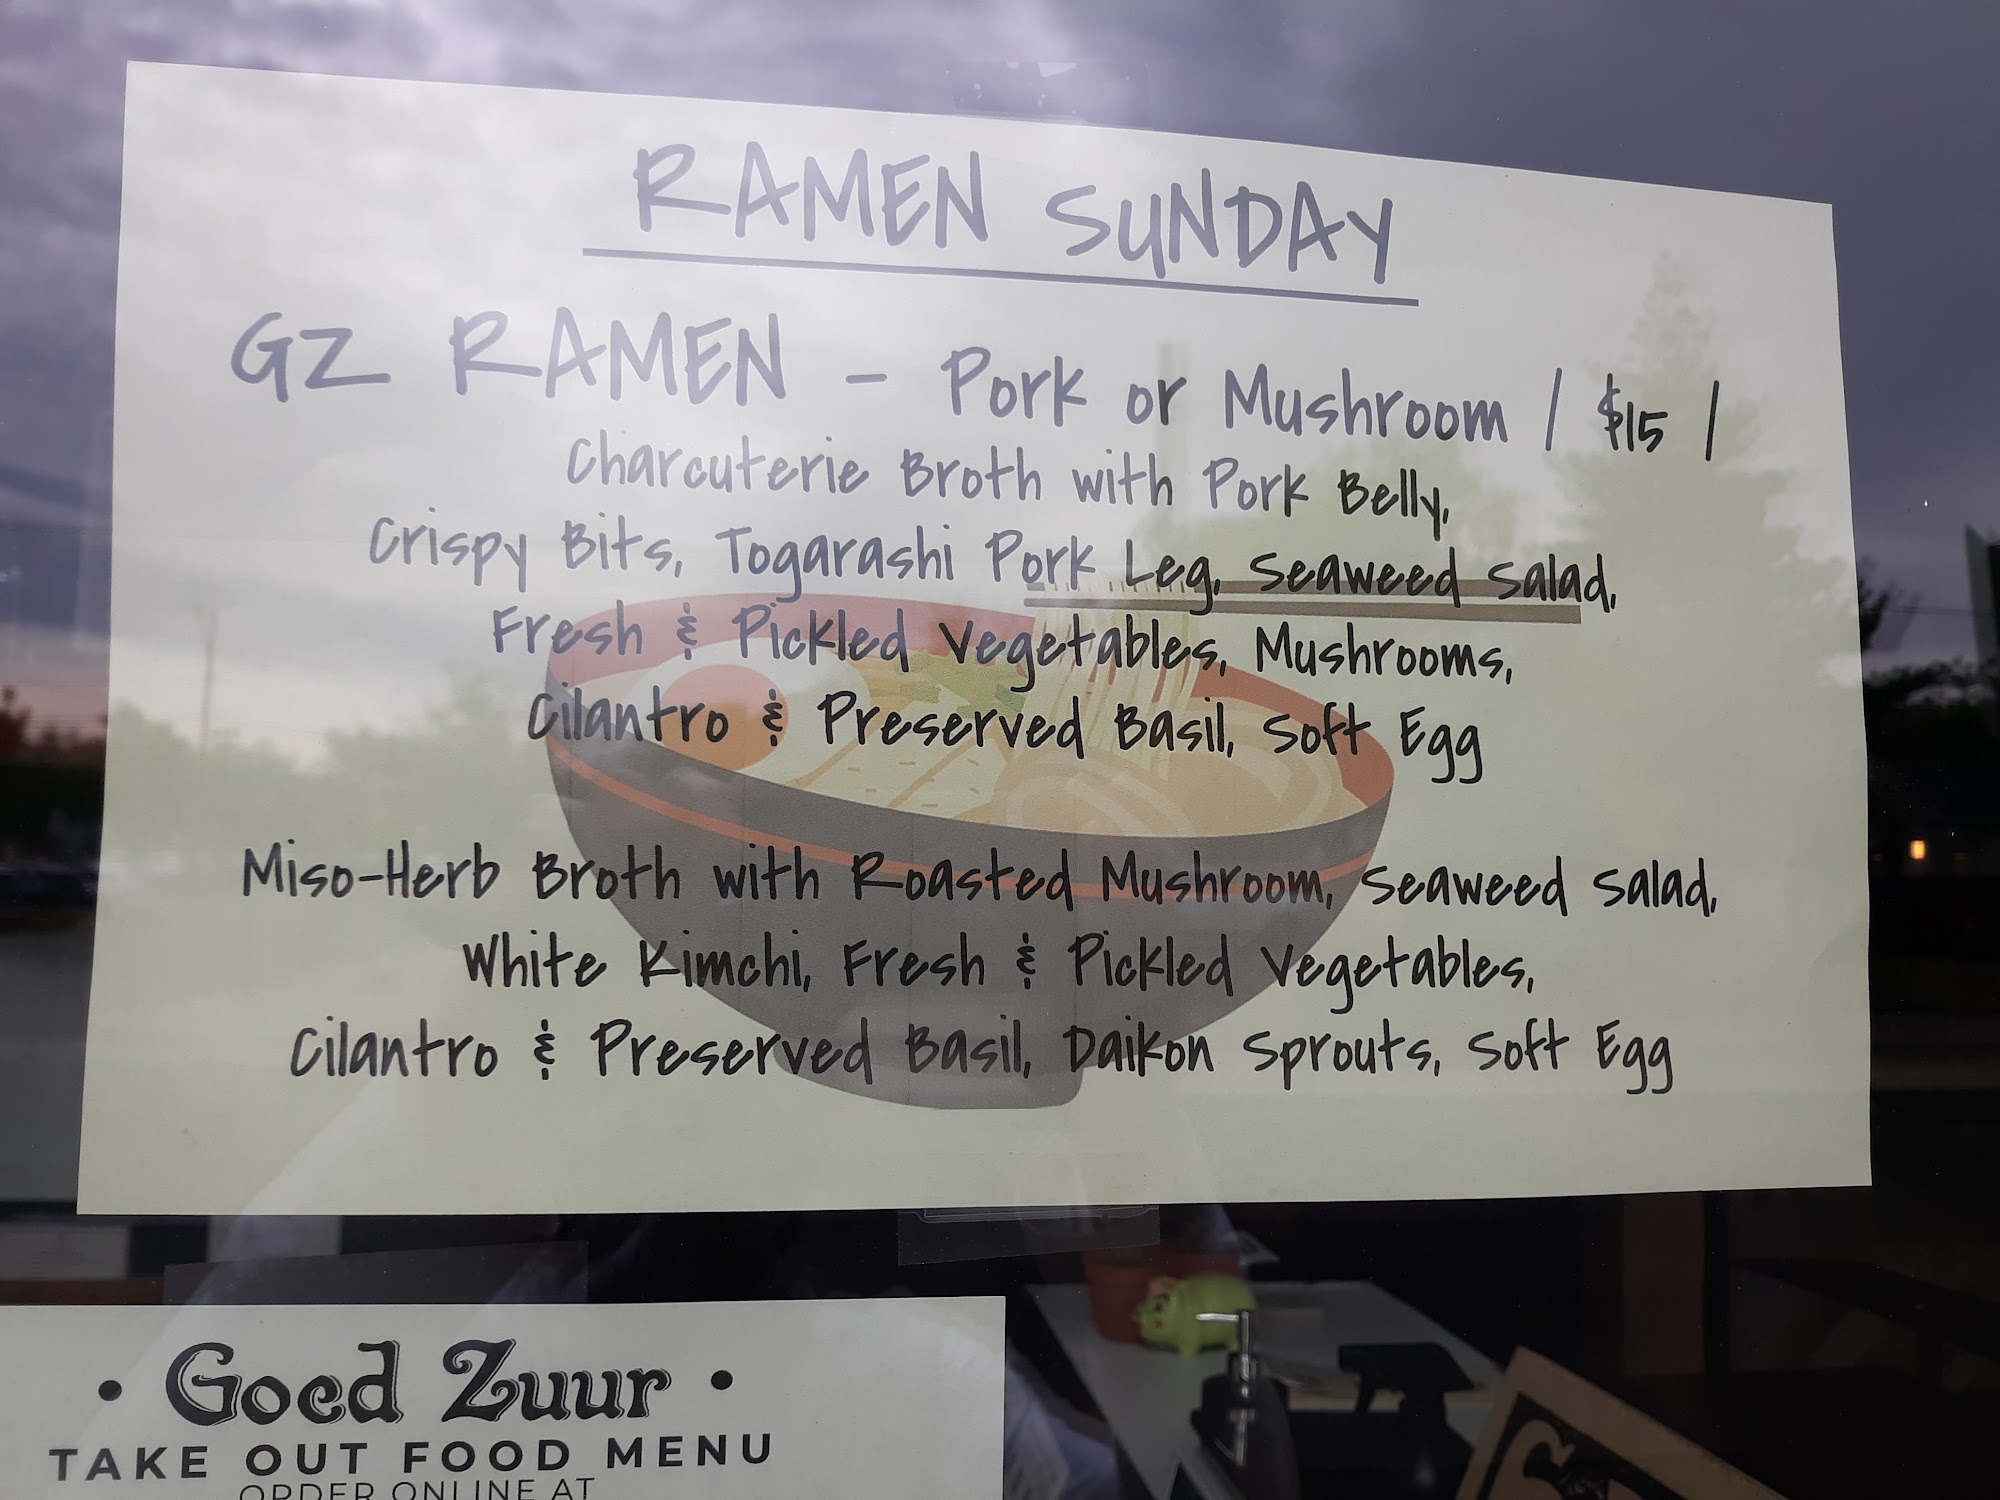 RAMEN SUNDAY
GZ RAMEN - Pork or Mushroom / $15 /
Charcuterie Broth with Pork Belly,
Crispy Bits, Togarashi Pork Leg, Seaweed Salad,
Fresh & Pickled Vegetables, Mushrooms,
Cilantro & Preserved Basil, Soft Egg
Miso-Herb Broth with Roasted Mushroom, Seaweed Salad,
White Kimchi, Fresh & Pickled Vegetables,
Cilantro & Preserved Basil, Daikon Sprouts, Soft Egg
• Goed Zuur •
TAKE OUT FOOD MENU
ORDER ONLINE AT